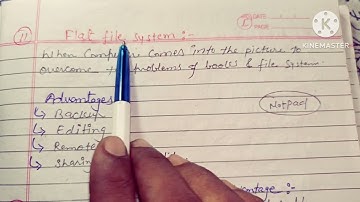 11) Flat file system :-
DATE
PAGE
KINEMASTER
When Computer comes into the picture to
overcome problems of books & file system
Notpad
Advantages
↳ Backup
↳ Editing
↳ Remote
↳ Sharing